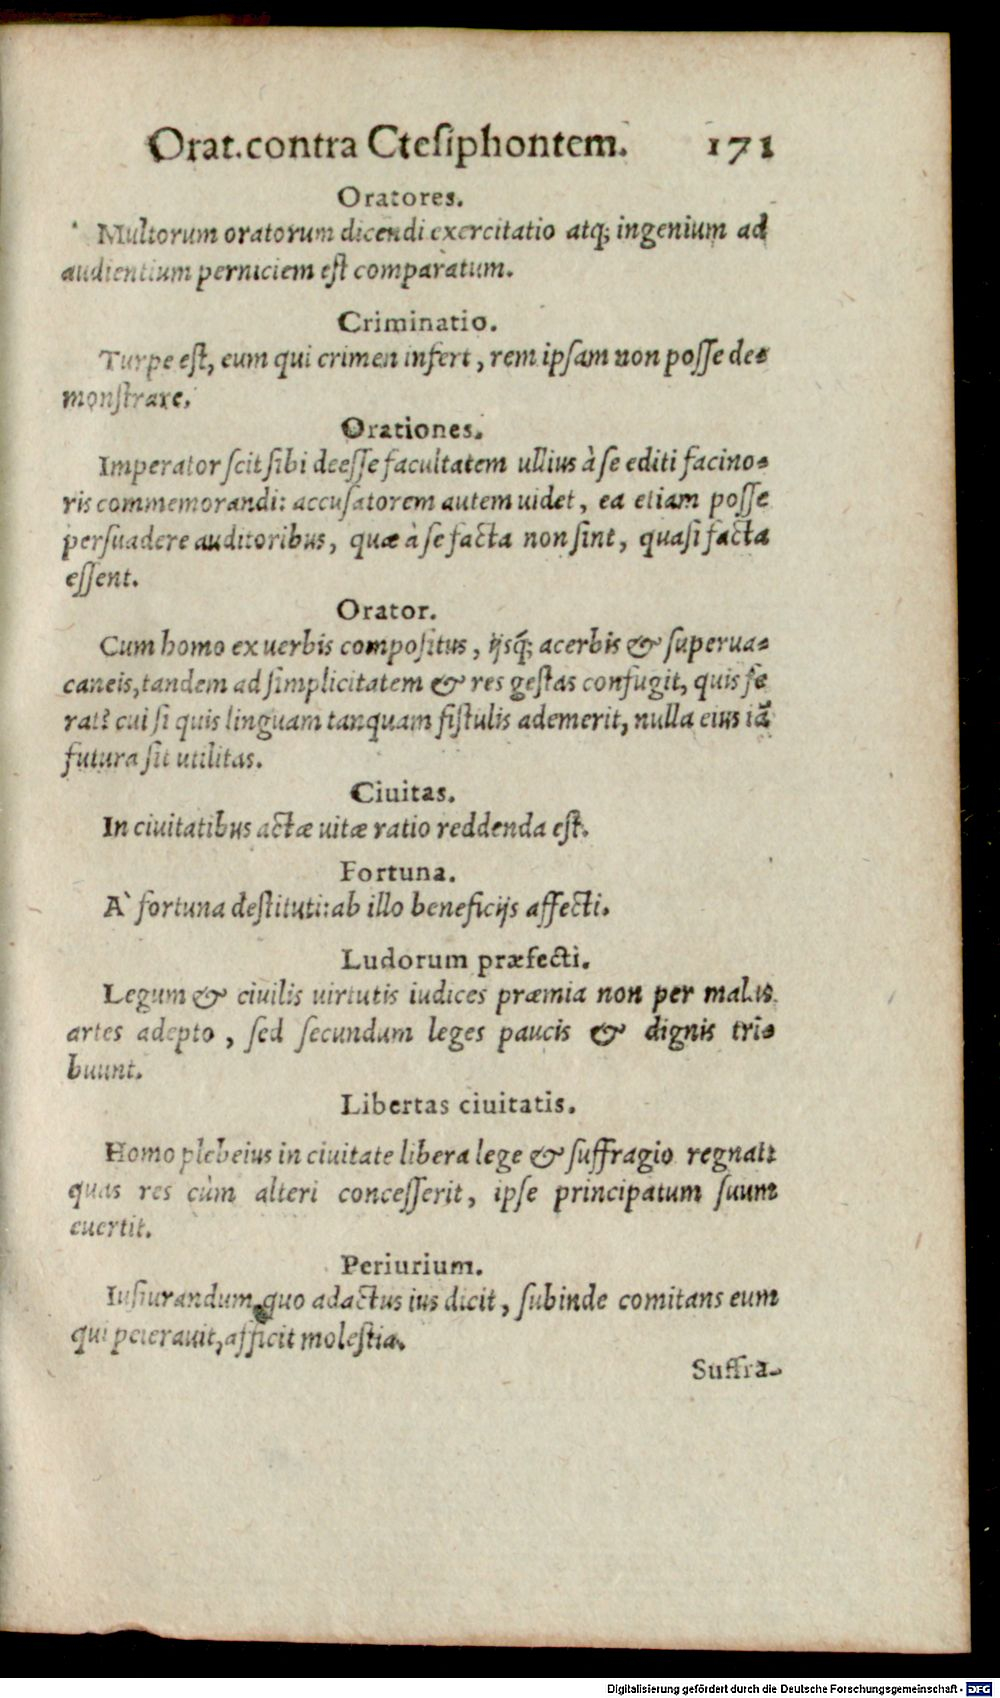 Orat. contra Ctesiphontem. 171
Oratores.
Multorum oratorum dicendi exercitatio atq; ingenium ad
audientium perniciem est comparatum.
Criminatio.
Turpe est, eum qui crimen infert, rem ipsam non posse de-
monstrare.
Orationes.
Imperator scit sibi deesse facultatem ullius à se editi facino-
ris commemorandi: accusatorem autem uidet, ea etiam posse
persuadere auditoribus, quæ à se facta non sint, quasi facta
essent.
Orator.
Cum homo ex uerbis compositus, ijsq́; acerbis & superua-
caneis, tandem ad simplicitatem & res gestas confugit, quis fe
rat? cui si quis linguam tanquam fistulis ademerit, nulla eius iã
futura sit utilitas.
Ciuitas.
In ciuitatibus actæ uitæ ratio reddenda est.
Fortuna.
A` fortuna destituti: ab illo beneficijs affecti.
Ludorum præfecti.
Legum & ciuilis uirtutis iudices præmia non per malas
artes adepto, sed secundum leges paucis & dignis tri-
buunt.
Libertas ciuitatis.
Homo plebeius in ciuitate libera lege & suffragio regnat:
quas res cùm alteri concesserit, ipse principatum suum
euertit.
Periurium.
Iusiurandum quo adactus ius dicit, subinde comitans eum
qui peierauit, afficit molestia.
Suffra-
Digitalisierung gefördert durch die Deutsche Forschungsgemeinschaft - DFG